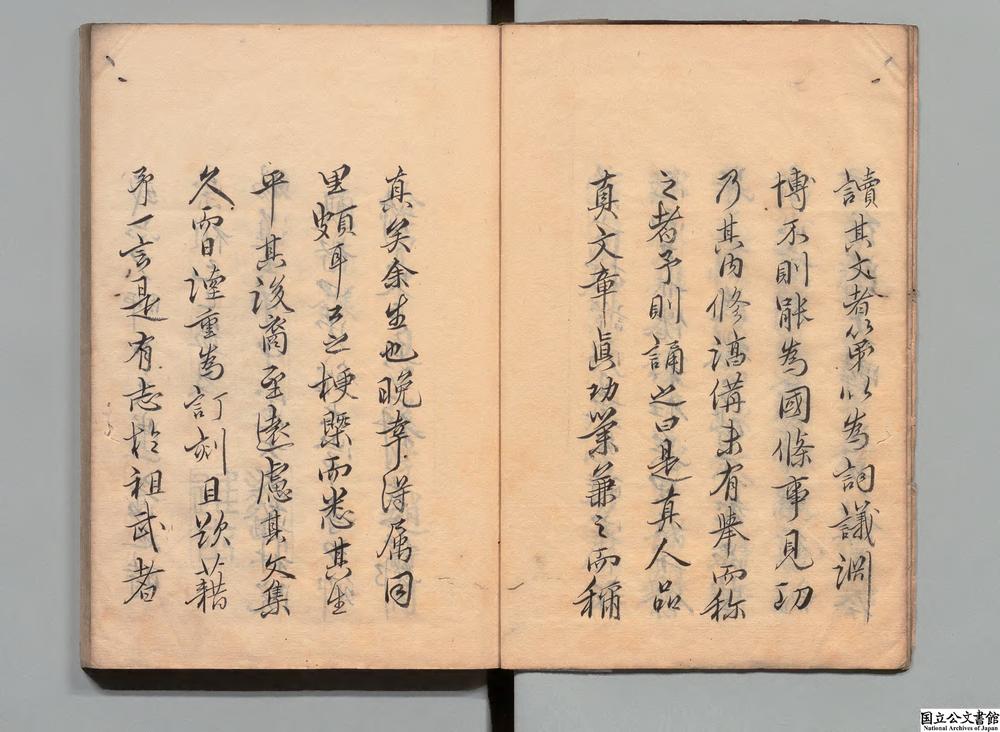 讀其文者第以為詞議淵
博不則能為國條事見功
乃其內修満俻未有舉而称
之者予則誦之曰是真人品
真文章真功業兼之而稱
真矣余生也晚幸得属同
里頗耳公之梗槩而悉其生
平其後裔至遠慮其文集
久而日湮重為訂刻且欵藉
予一言是有志於祖武者
国立公文書館
National Archives of Japan